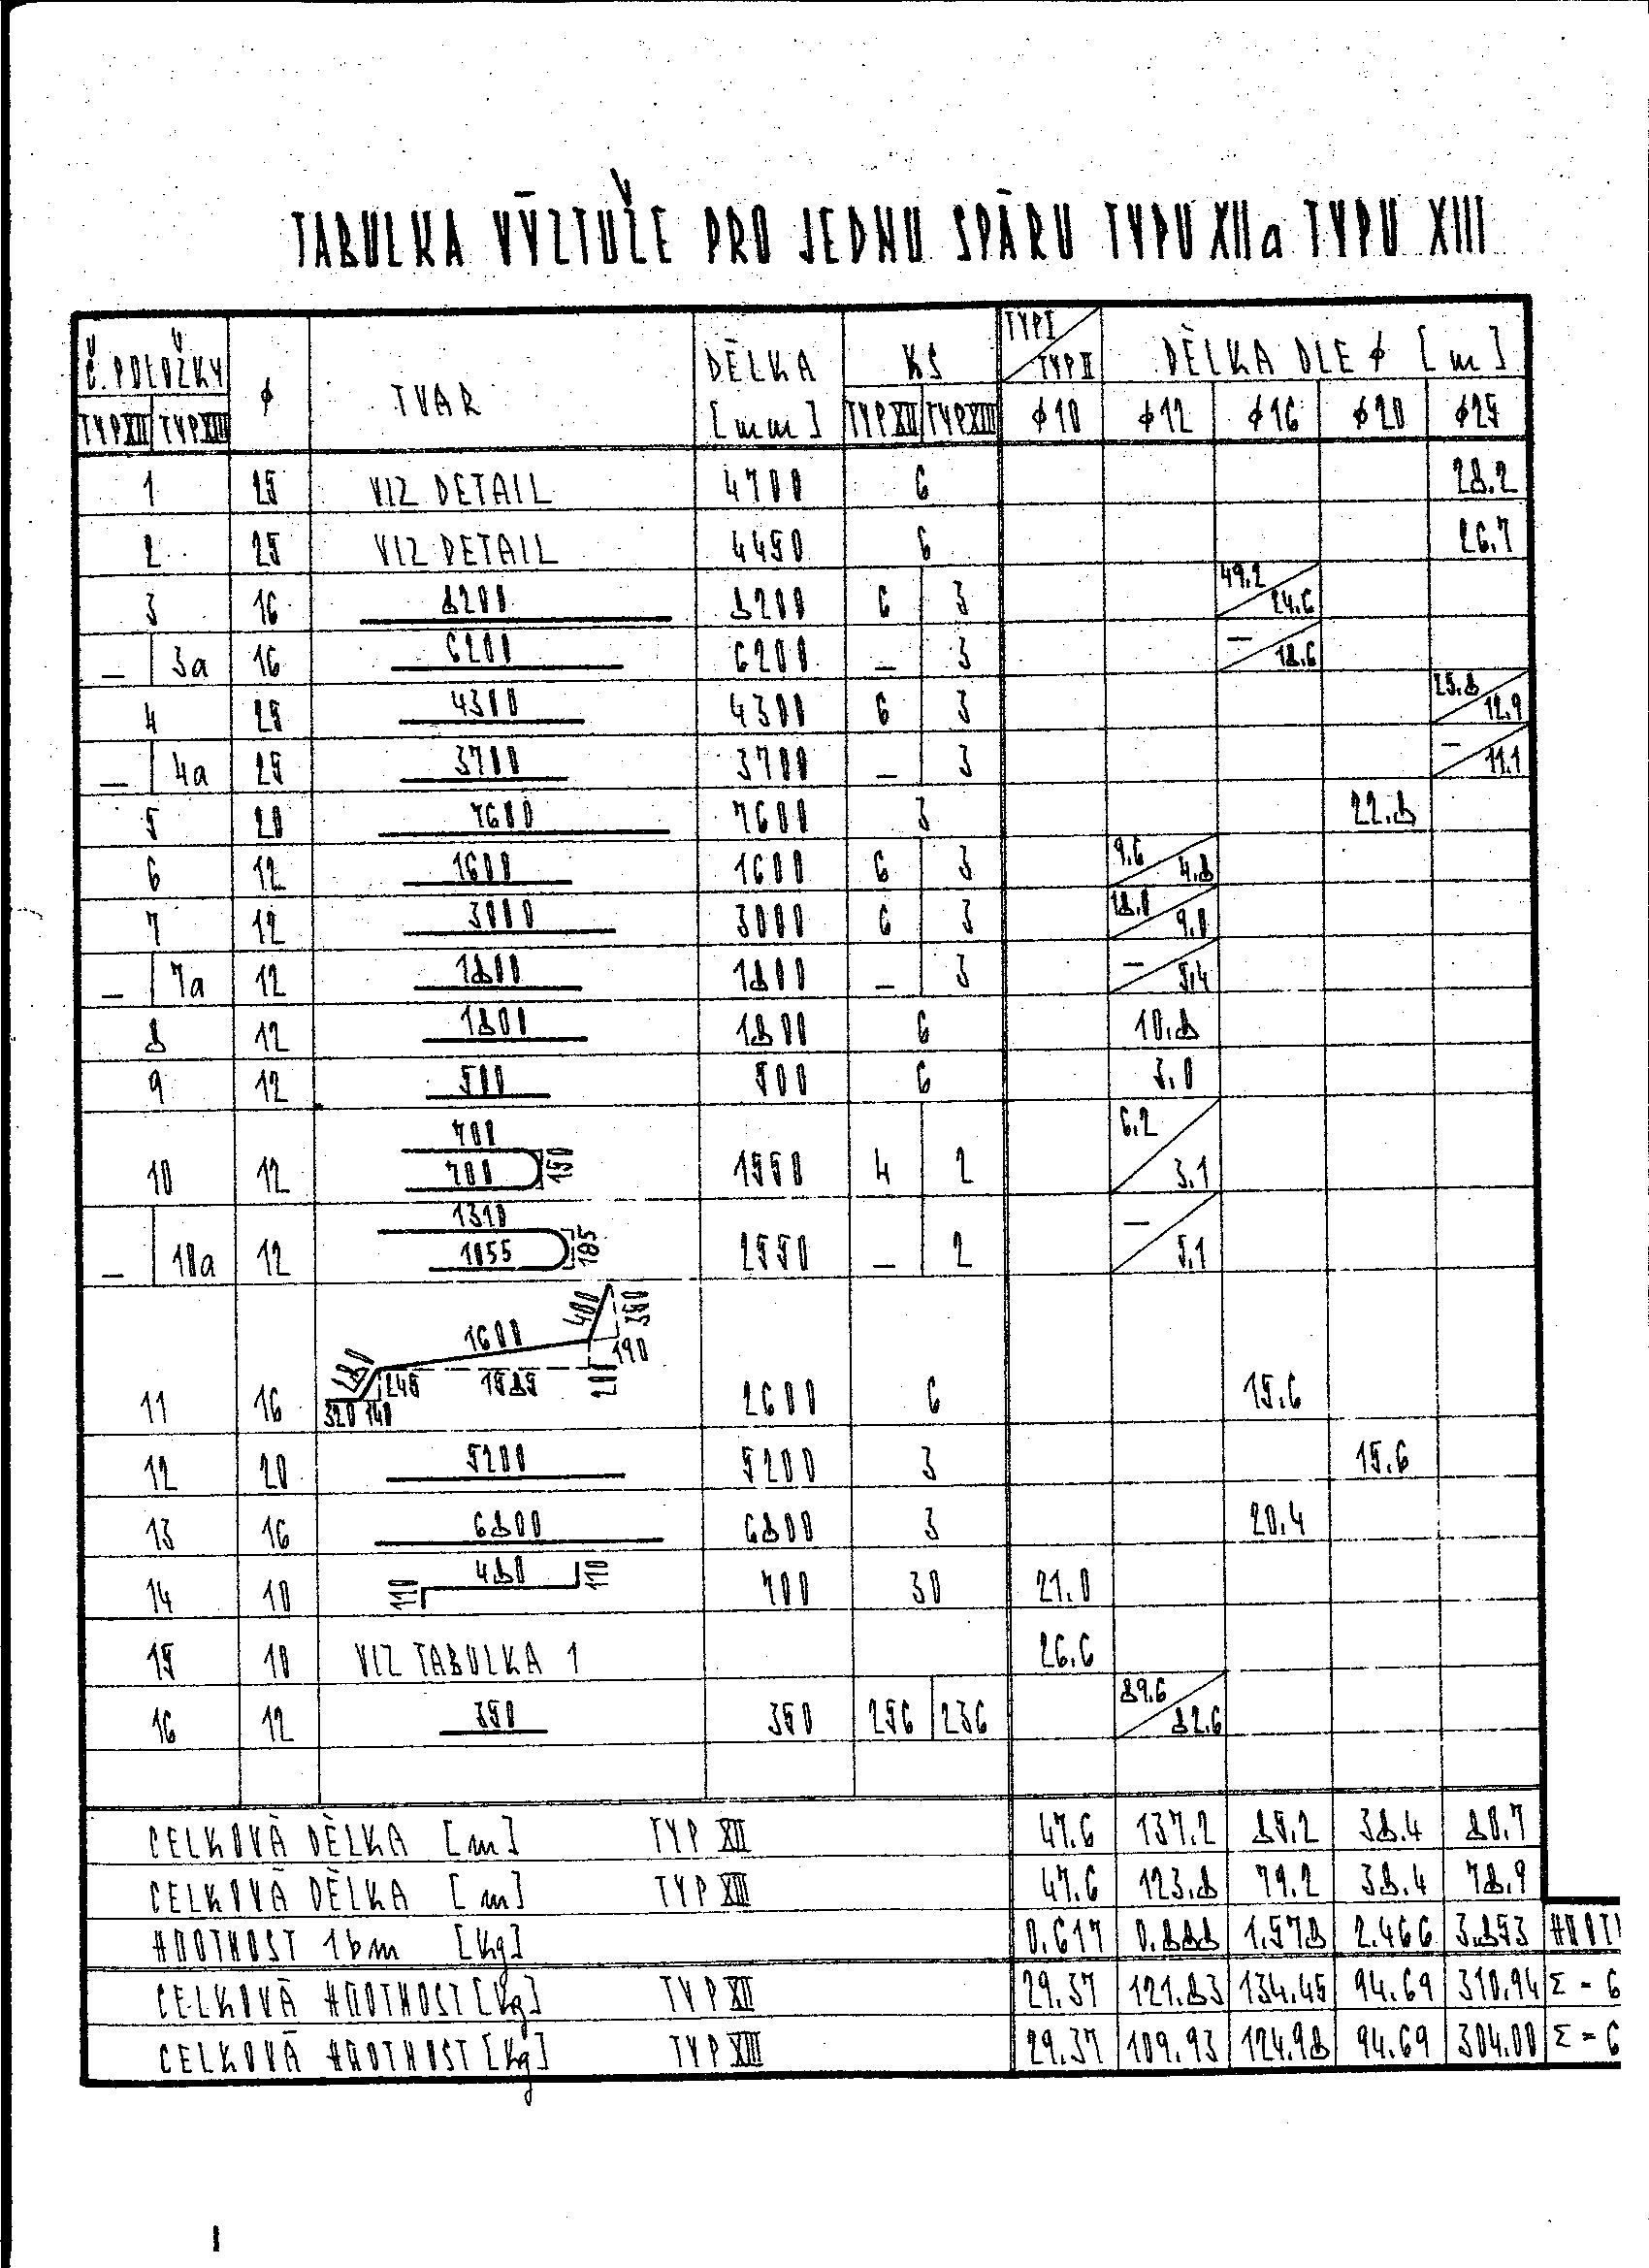 TABULKA VÝZTUŽE PRO JEDNU SPÁRU TYPU XII a TYPU XIII
Č. POLOŽKY ϕ TVAR DÉLKA [mm] KS TYP I TYP II DÉLKA DLE ϕ [m]
TYP XII TYP XIII TYP XII TYP XIII ϕ10 ϕ12 ϕ16 ϕ20 ϕ25
1 25 VIZ DETAIL 4700 6 28.2
2 25 VIZ DETAIL 4450 6 26.7
3 16 8200 8200 6 3 49.2 24.6
— 3a 16 6200 6200 — 3 — 18.6
4 25 4300 4300 6 3 25.8 12.9
— 4a 25 3700 3700 — 3 — 11.1
5 20 7600 7600 3 22.8
6 12 1600 1600 6 3 9.6 4.8
7 12 3000 3000 6 3 18.0 9.0
— 7a 12 1800 1800 — 3 — 5.4
8 12 1800 1800 6 10.8
9 12 500 500 6 3.0
10 12 700 700 150 1550 4 2 6.2 3.1
— 10a 12 1310 1055 185 2550 — 2 — 5.1
11 16 320 140 280 245 1600 1585 200 400 350 190 2600 6 15.6
12 20 5200 5200 3 15.6
13 16 6800 6800 3 20.4
14 10 110 480 110 700 30 21.0
15 10 VIZ TABULKA 1 26.6
16 12 350 350 256 236 89.6 82.6
CELKOVÁ DÉLKA [m] TYP XII 47.6 137.2 85.2 38.4 80.7
CELKOVÁ DÉLKA [m] TYP XIII 47.6 123.8 79.2 38.4 78.9
HMOTNOST 1bm [kg] 0.617 0.888 1.578 2.466 3.853 HMOT
CELKOVÁ HMOTNOST [kg] TYP XII 29.37 121.83 134.45 94.69 310.94 Σ = 6
CELKOVÁ HMOTNOST [kg] TYP XIII 29.37 109.93 124.98 94.69 304.00 Σ = 6